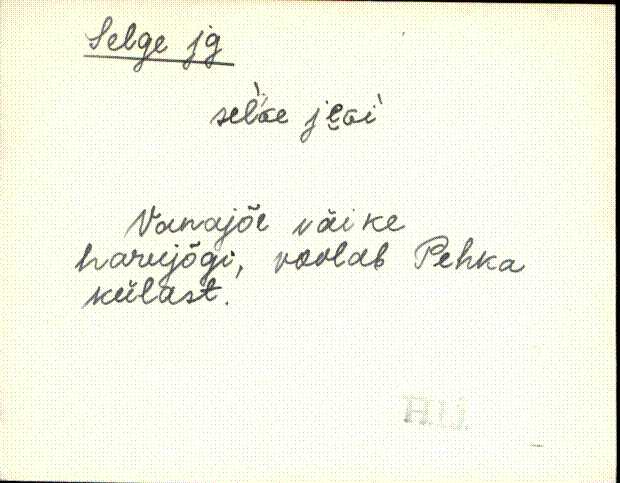 Selge jg
Vanajõe väike
harujõgi, voolab Pehka
külast.